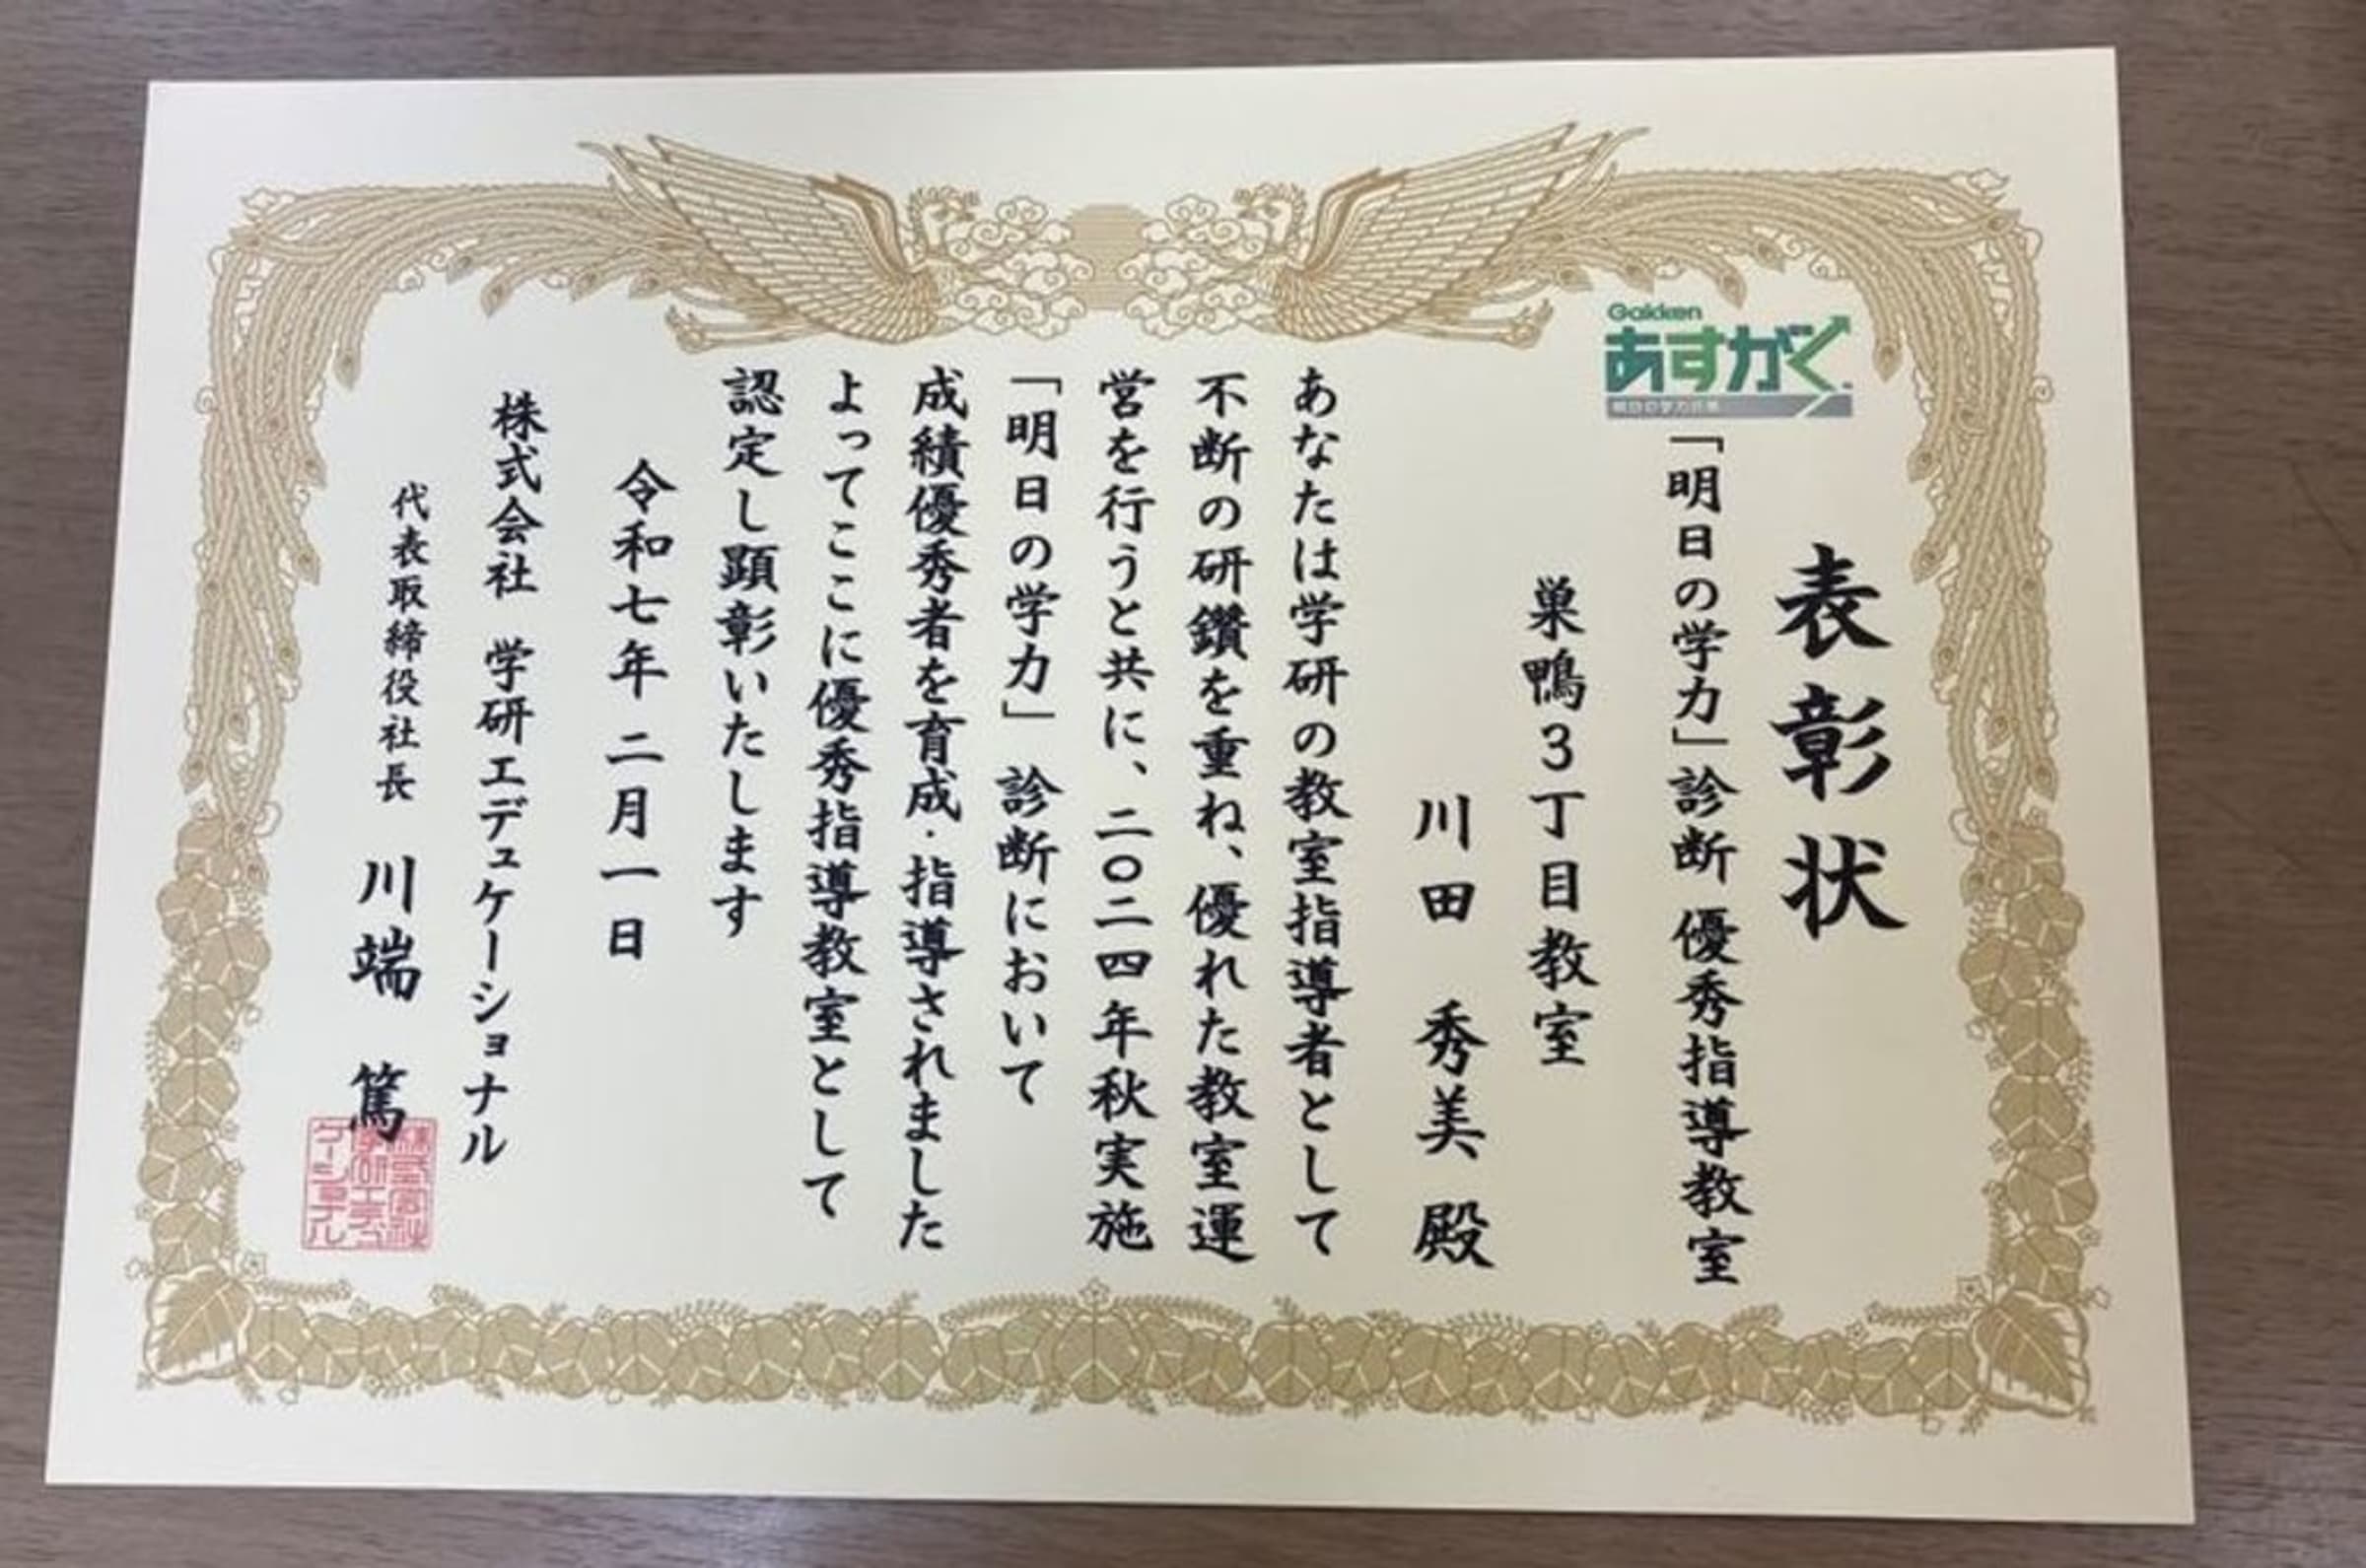 表彰状
Gakken
あすがく
「明日の学力」診断 優秀指導教室
巣鴨3丁目教室
川田 秀美 殿
あなたは学研の教室指導者として
不断の研鑽を重ね、優れた教室運
営を行うと共に、二〇二四年秋実施
「明日の学力」診断において
成績優秀者を育成・指導されました
よってここに優秀指導教室として
認定し顕彰いたします
令和七年二月一日
株式会社 学研エデュケーショナル
代表取締役社長 川端 篤
株式会社
学研エデュ
ケーショナル